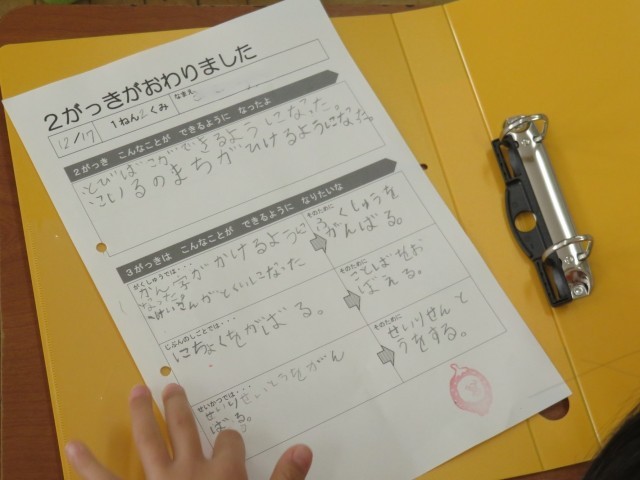 2がっきがおわりました
12/17
1ねん2くみ
なまえ
2がっき こんなことが できるように なったよ
とびばこができるようになった。
こいるのまちがひけるようになった
3がっきは こんなことが できるように なりたいな
がくしゅうでは・・・
かん字がかけるように
なった
けいさんがとくいになった
そのために
ふくしゅうを
がんばる。
じぶんのしごとでは・・・
にちょくをがばる。
そのために
ことばをお
ぼえる。
せいかつでは・・・
せいりせいとうをがん
ばる。
そのために
せいりせんと
うをする。